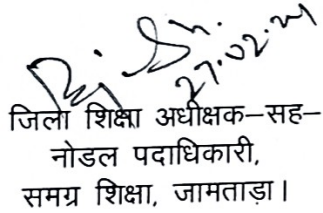 27.02.21
जिला शिक्षा अधीक्षक–सह–
नोडल पदाधिकारी,
समग्र शिक्षा, जामताड़ा।